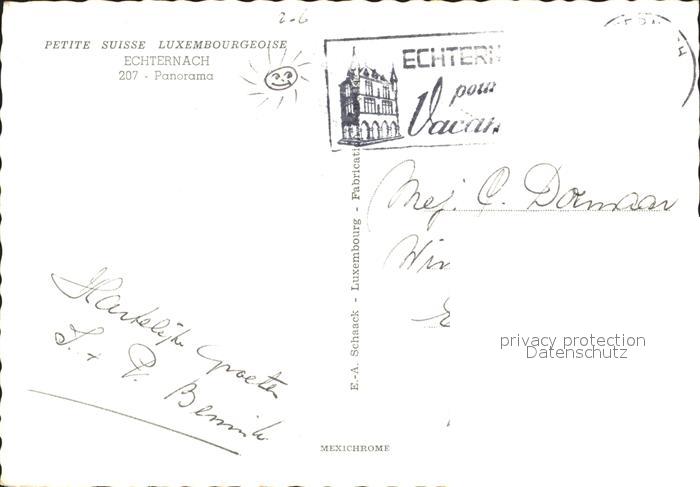 2-6
PETITE SUISSE LUXEMBOURGEOISE
ECHTERNACH
207 - Panorama
ECHTERN
pour
Vacan
E.-A. Schaack - Luxembourg - Fabricati
Mej. C. Dornaar
Win
Hartelijke groeten
privacy protection
Datenschutz
MEXICHROME